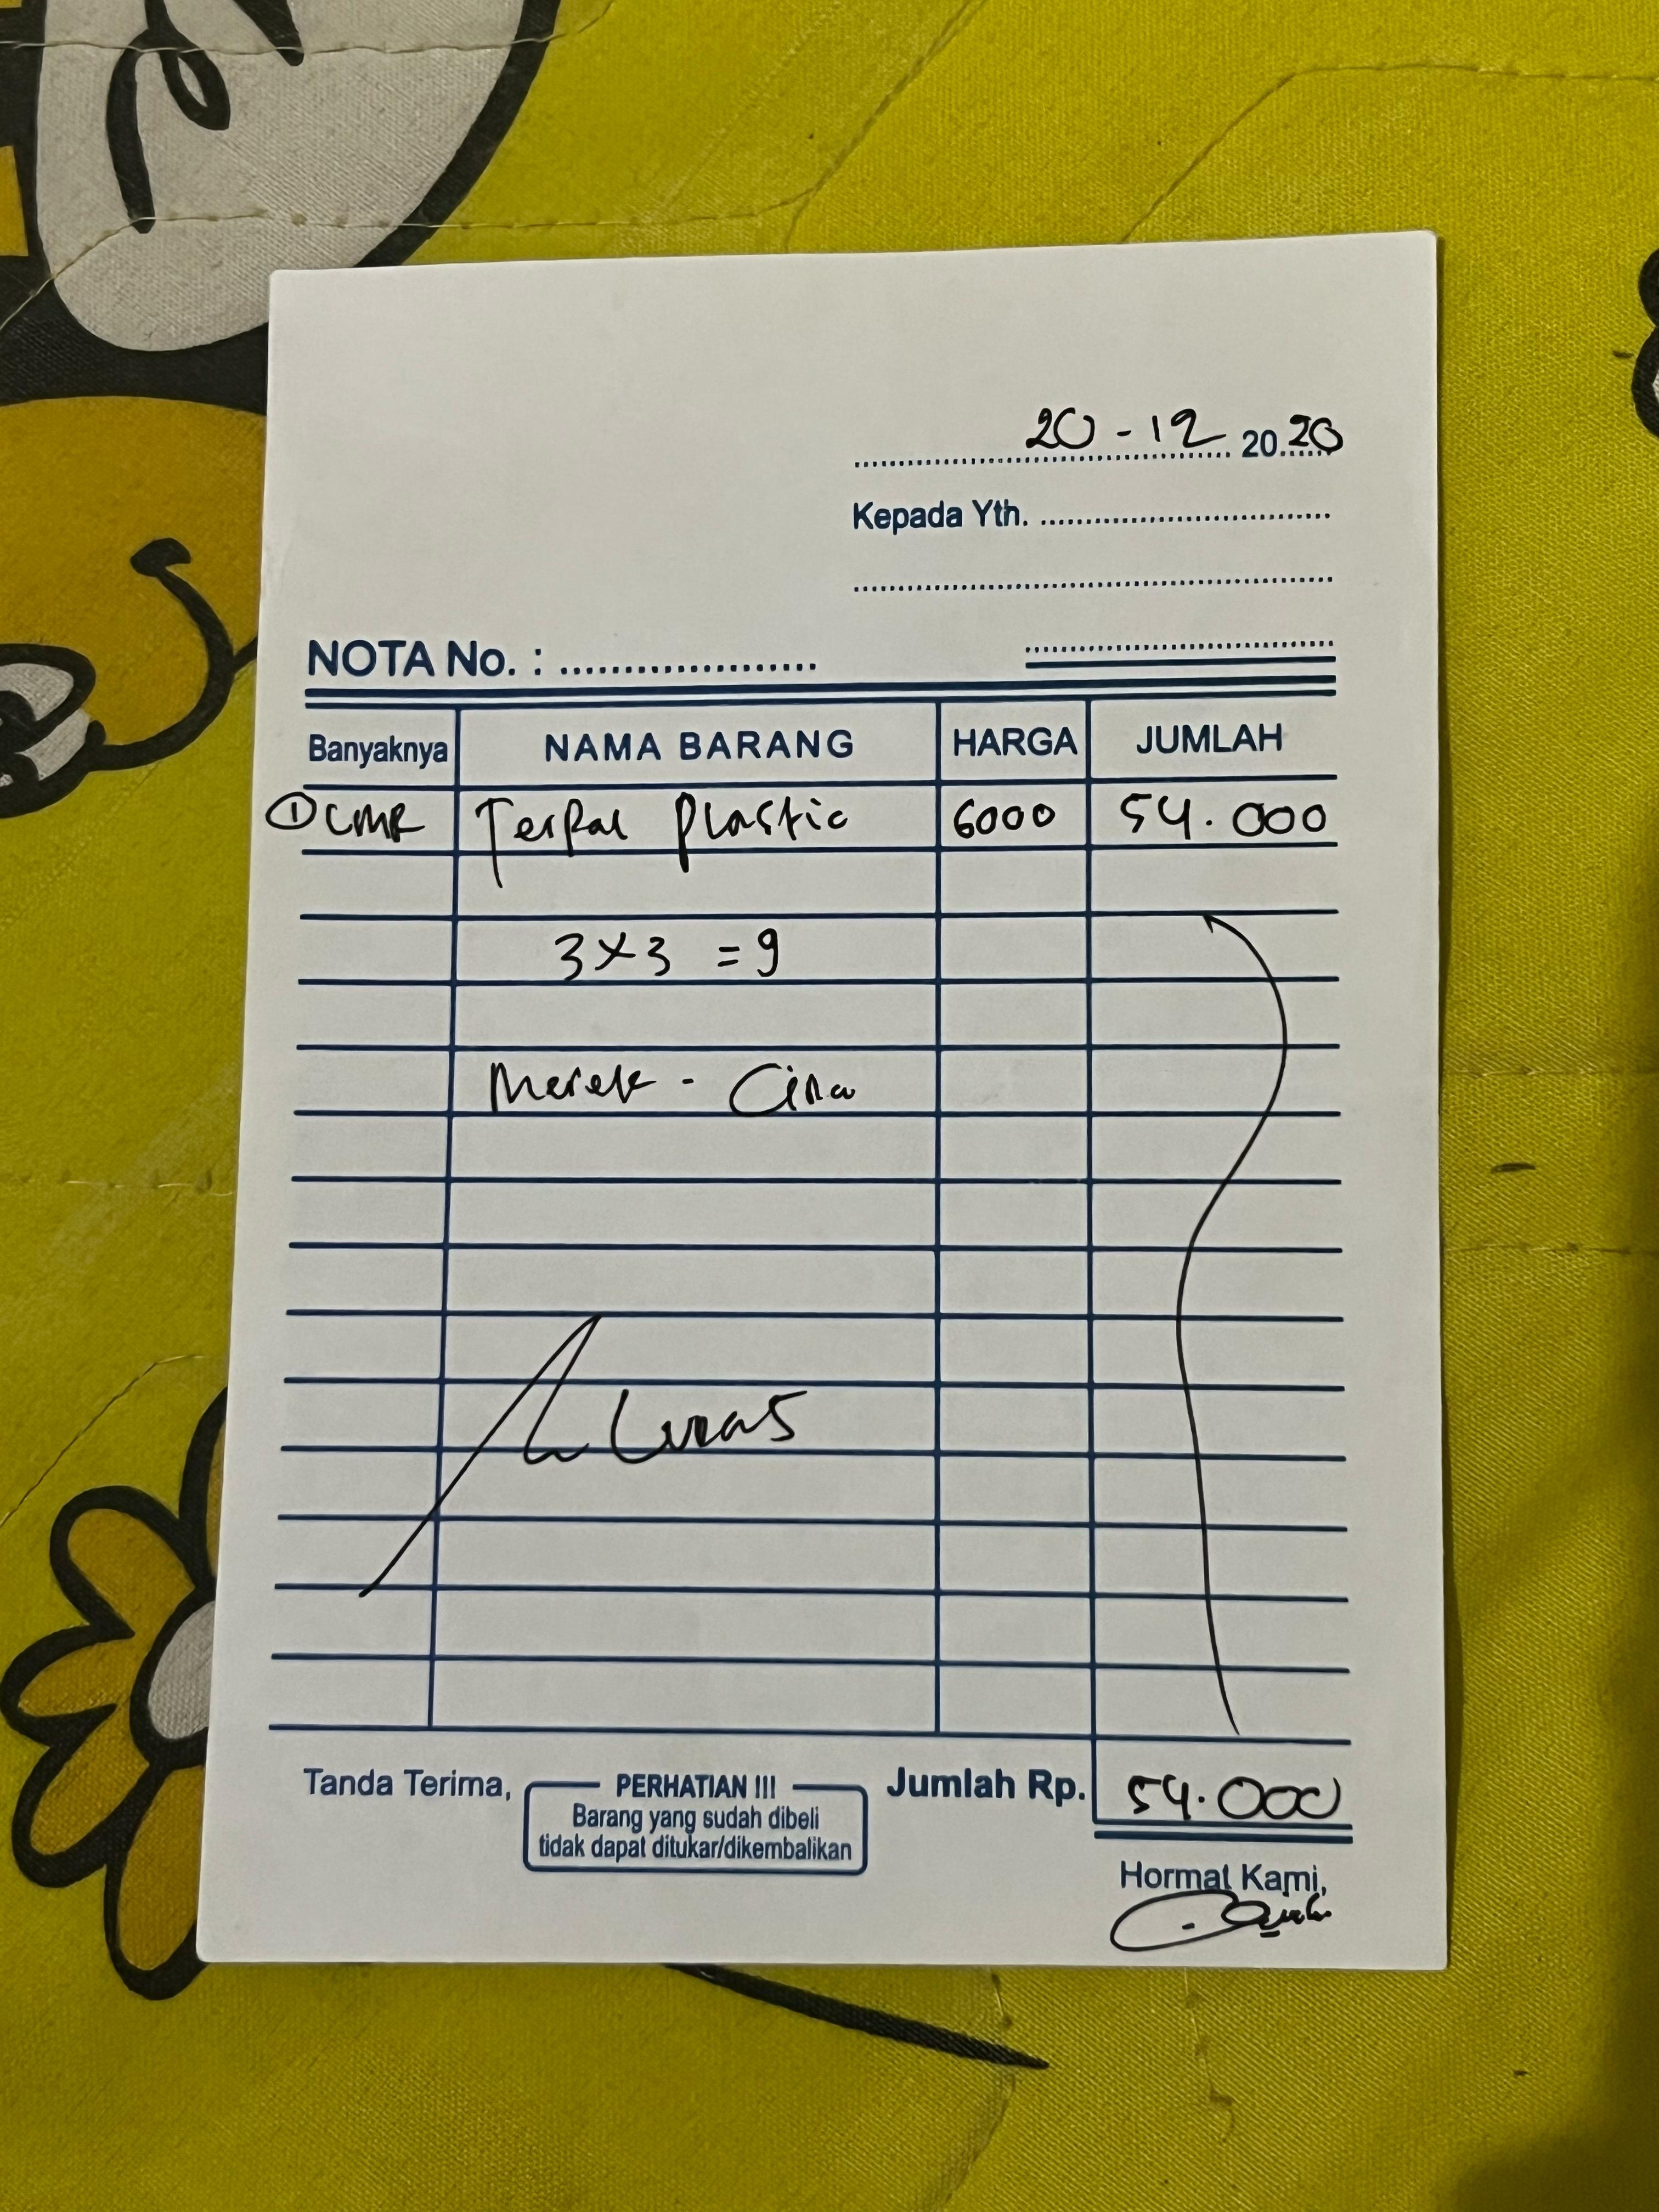 20-12 2020
Kepada Yth.
NOTA No. :
Banyaknya NAMA BARANG HARGA JUMLAH
① LMR Terpal Plastic 6000 54.000
3x3 = 9
Merek - Cina
Lunas
Tanda Terima, PERHATIAN !!! Jumlah Rp. 54.000
Barang yang sudah dibeli
tidak dapat ditukar/dikembalikan
Hormat Kami,